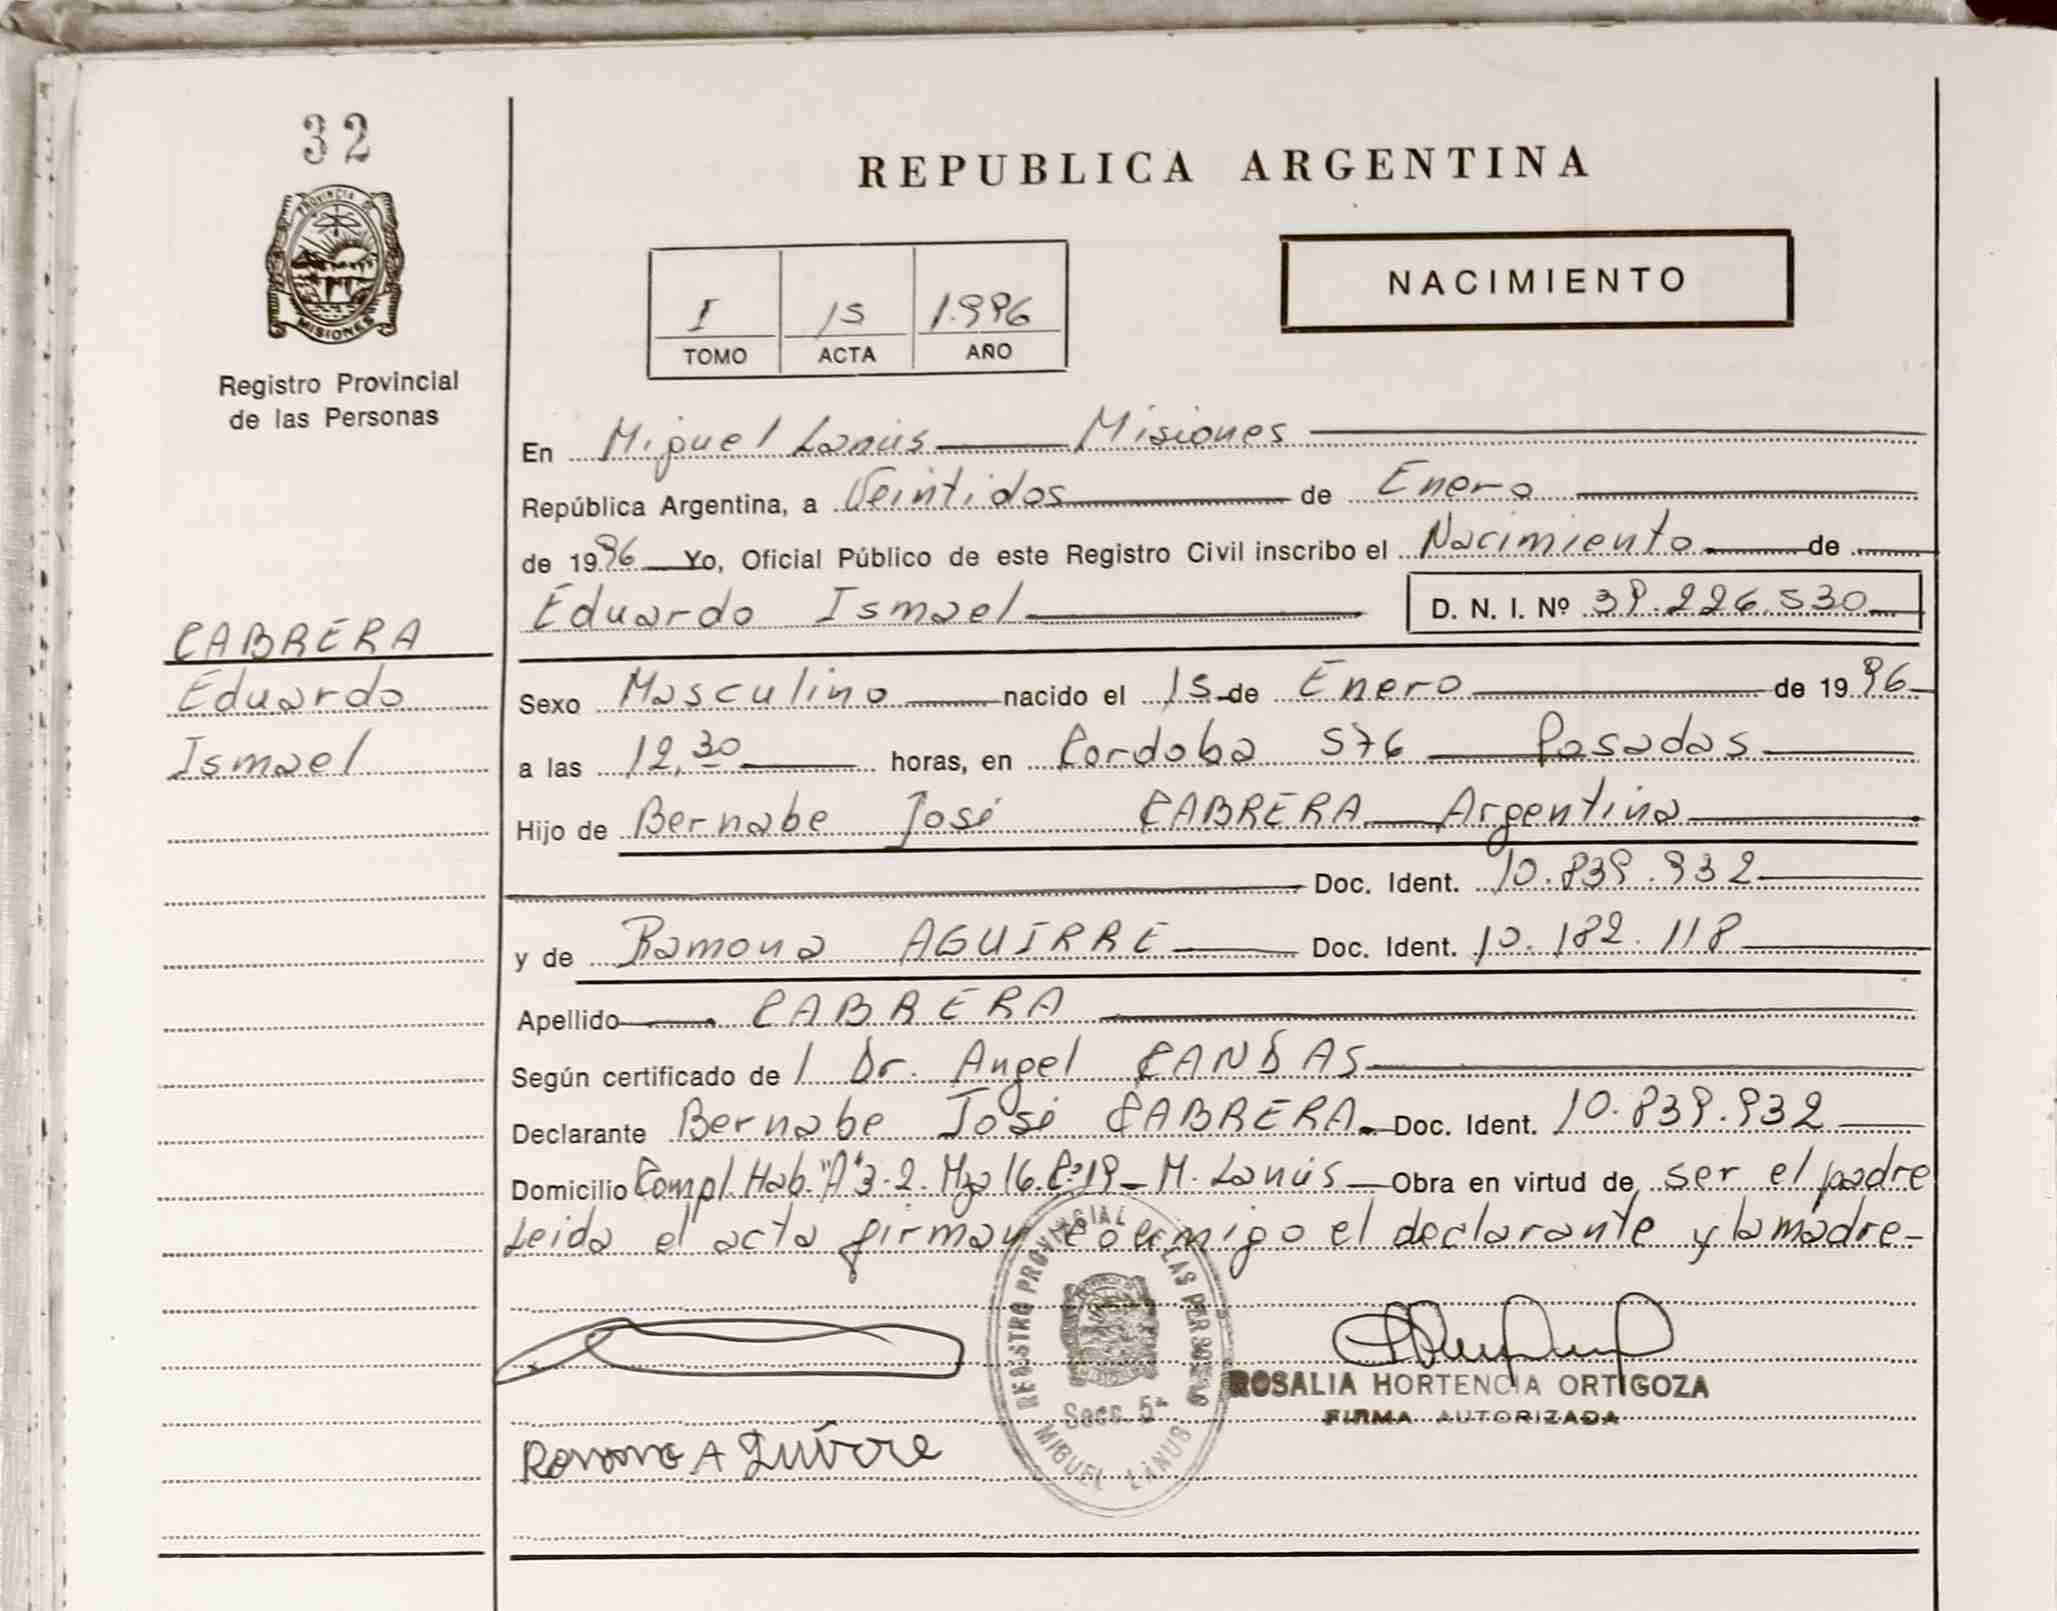 32
PROVINCIA DE
MISIONES
Registro Provincial
de las Personas
REPUBLICA ARGENTINA
NACIMIENTO
I 15 1.996
TOMO ACTA AÑO
En Miguel Lanús Misiones
República Argentina, a Veintidos de Enero
de 1996 Yo, Oficial Público de este Registro Civil inscribo el Nacimiento de
Eduardo Ismael D. N. I. Nº 39.226.530
CABRERA
Eduardo
Ismael
Sexo Masculino nacido el 15 de Enero de 1996
a las 12,30 horas, en Cordoba 576 Posadas
Hijo de Bernabe José CABRERA Argentina
Doc. Ident. 10.839.932
y de Ramona AGUIRRE Doc. Ident. 10.182.118
Apellido CABRERA
Según certificado de l Dr. Angel CANDAS
Declarante Bernabe José CABRERA Doc. Ident. 10.839.932
Domicilio Compl. Hab. "A" 3-2. Mza 16. C: 19 - M. Lanús Obra en virtud de ser el padre
Leida el acta firman conmigo el declarante y la madre-
REGISTRO PROVINCIAL DE LAS PERSONAS
Secc. 5ª
MIGUEL LANUS
ROSALIA HORTENCIA ORTIGOZA
FIRMA AUTORIZADA
Ramona Aguirre